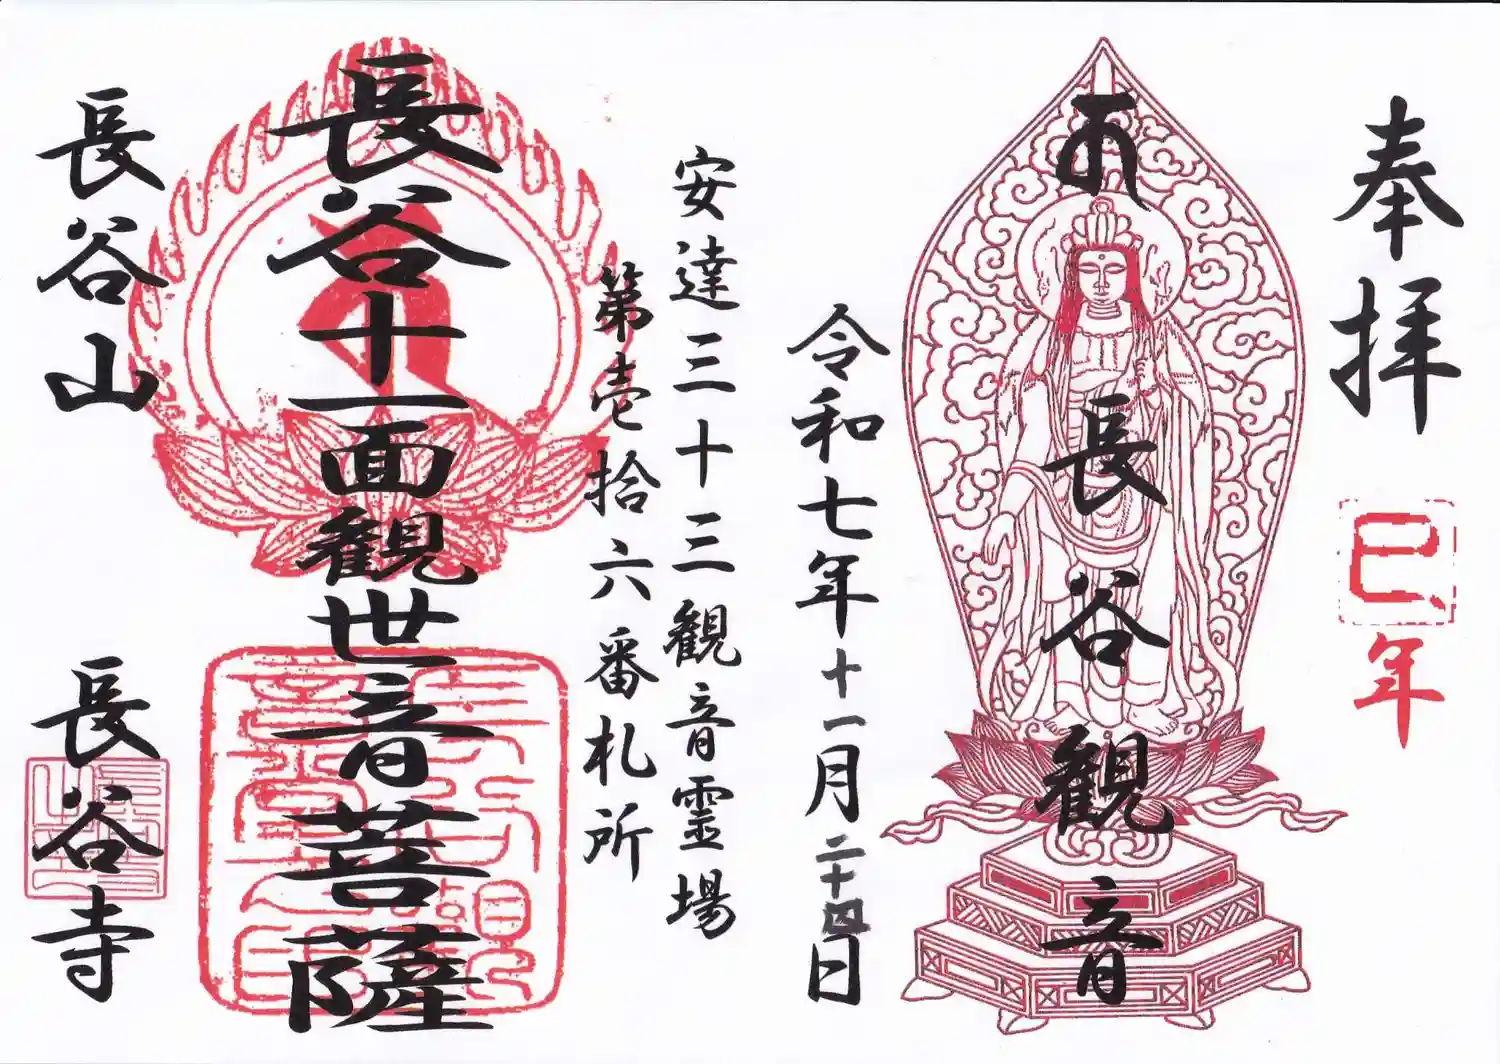 奉拝
巳
年
長谷観音
令和七年十一月二十四日
安達三十三観音霊場
第壱拾六番札所
長谷十一面観世音菩薩
長谷山
長谷寺